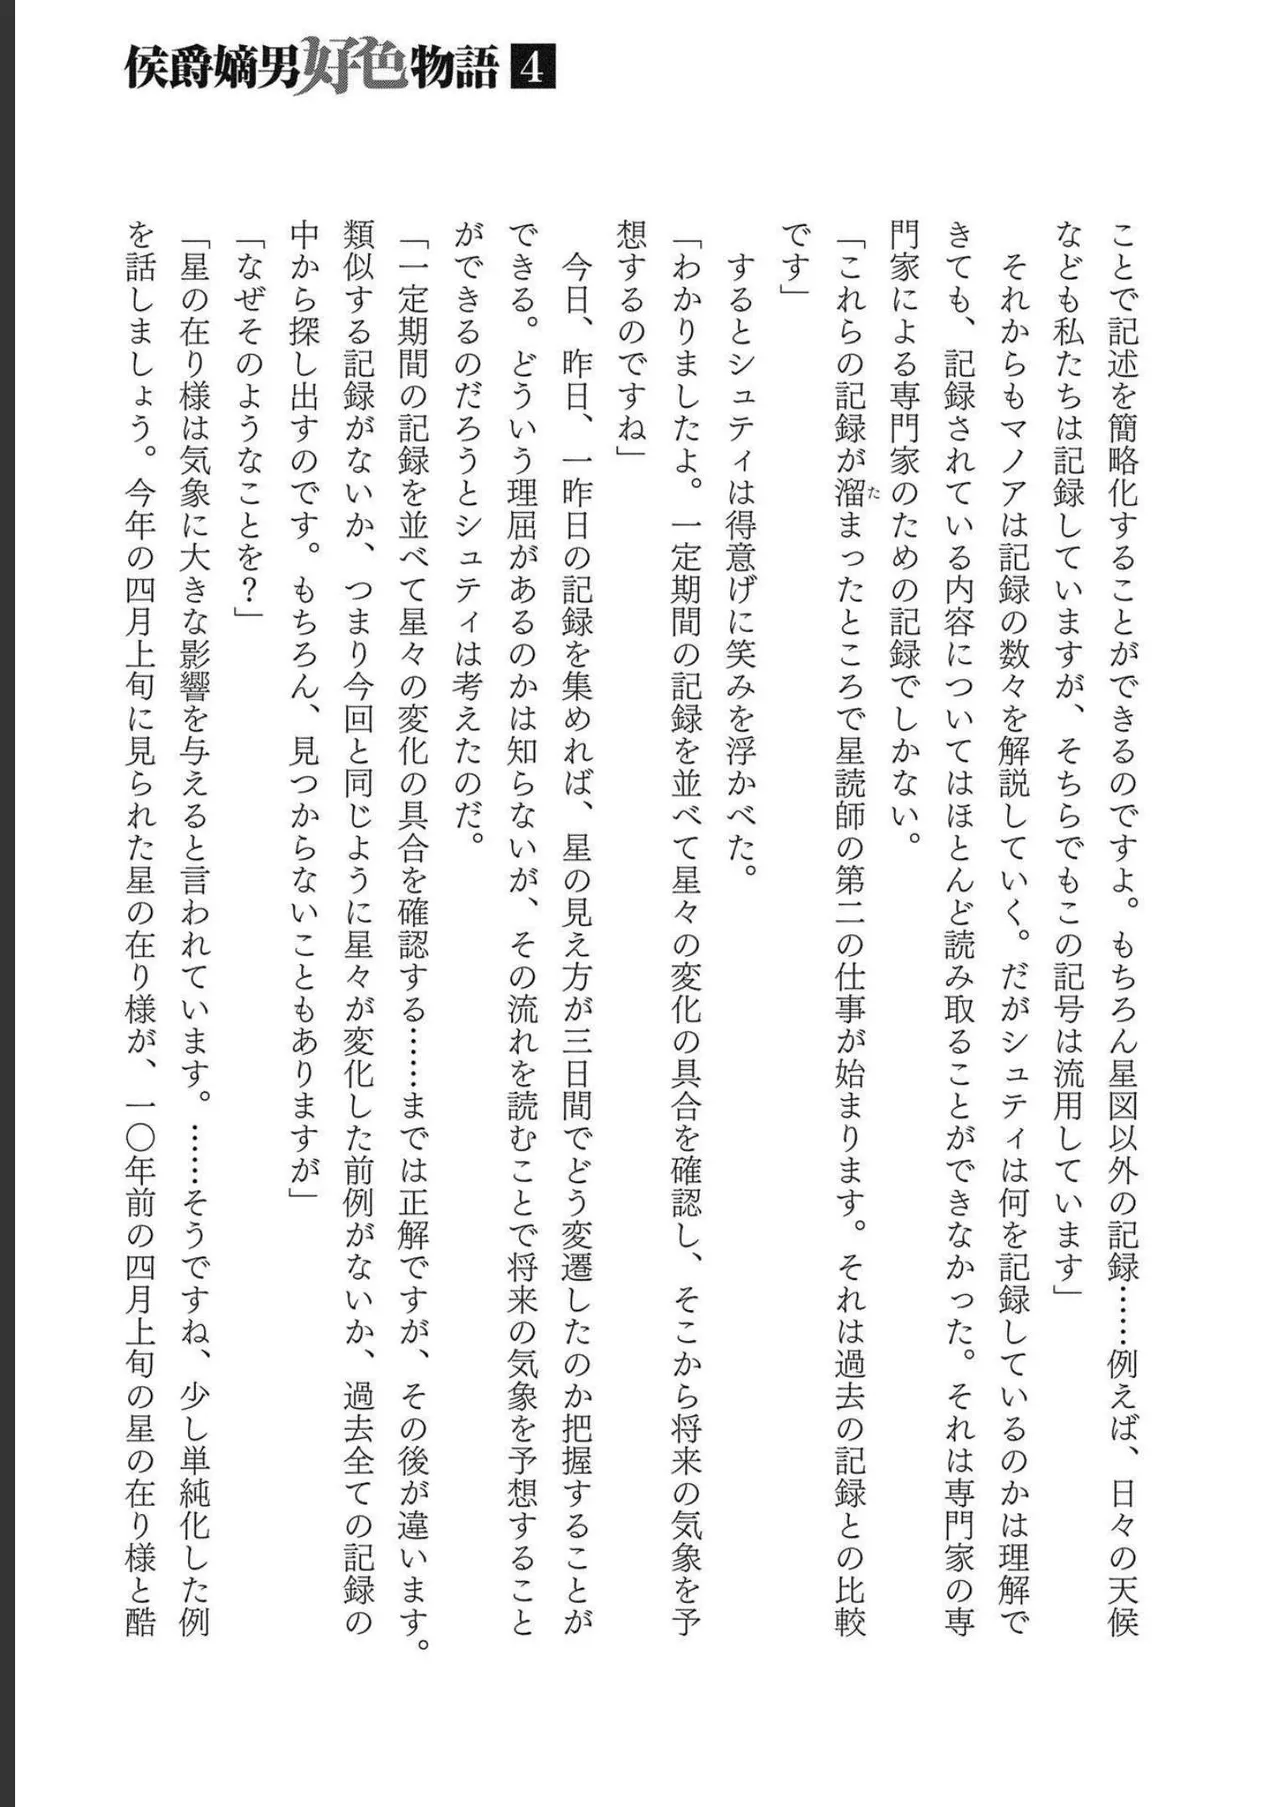 侯爵嫡男好色物語 4
ことで記述を簡略化することができるのですよ。もちろん星図以外の記録……例えば、日々の天候
なども私たちは記録していますが、そちらでもこの記号は流用しています」
それからもマノアは記録の数々を解説していく。だがシュティは何を記録しているのかは理解で
きても、記録されている内容についてはほとんど読み取ることができなかった。それは専門家の専
門家による専門家のための記録でしかない。
「これらの記録が溜まったところで星読師の第二の仕事が始まります。それは過去の記録との比較
です」
するとシュティは得意げに笑みを浮かべた。
「わかりましたよ。一定期間の記録を並べて星々の変化の具合を確認し、そこから将来の気象を予
想するのですね」
今日、昨日、一昨日の記録を集めれば、星の見え方が三日間でどう変遷したのか把握することが
できる。どういう理屈があるのかは知らないが、その流れを読むことで将来の気象を予想すること
ができるのだろうとシュティは考えたのだ。
「一定期間の記録を並べて星々の変化の具合を確認する……までは正解ですが、その後が違います。
類似する記録がないか、つまり今回と同じように星々が変化した前例がないか、過去全ての記録の
中から探し出すのです。もちろん、見つからないこともありますが」
「なぜそのようなことを？」
「星の在り様は気象に大きな影響を与えると言われています。……そうですね、少し単純化した例
を話しましょう。今年の四月上旬に見られた星の在り様が、一〇年前の四月上旬の星の在り様と酷